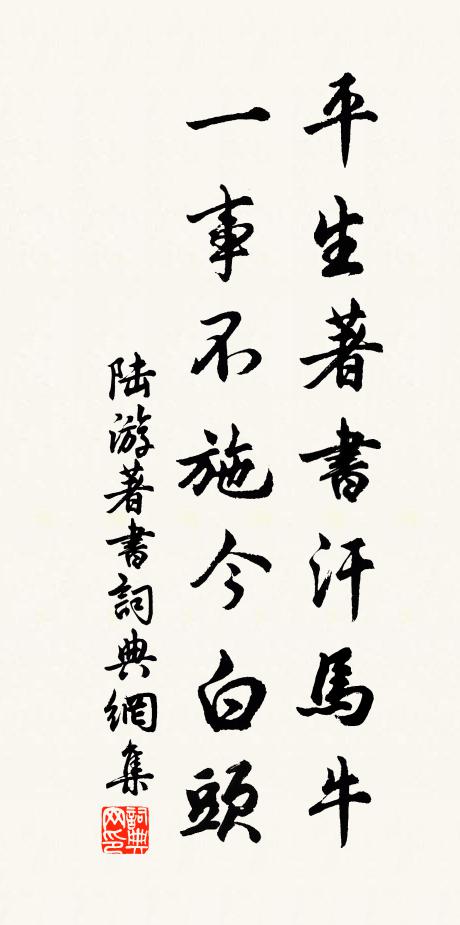 平生著書汗馬牛
一事不施今白頭
陸游著書詞典網集
詞典网印